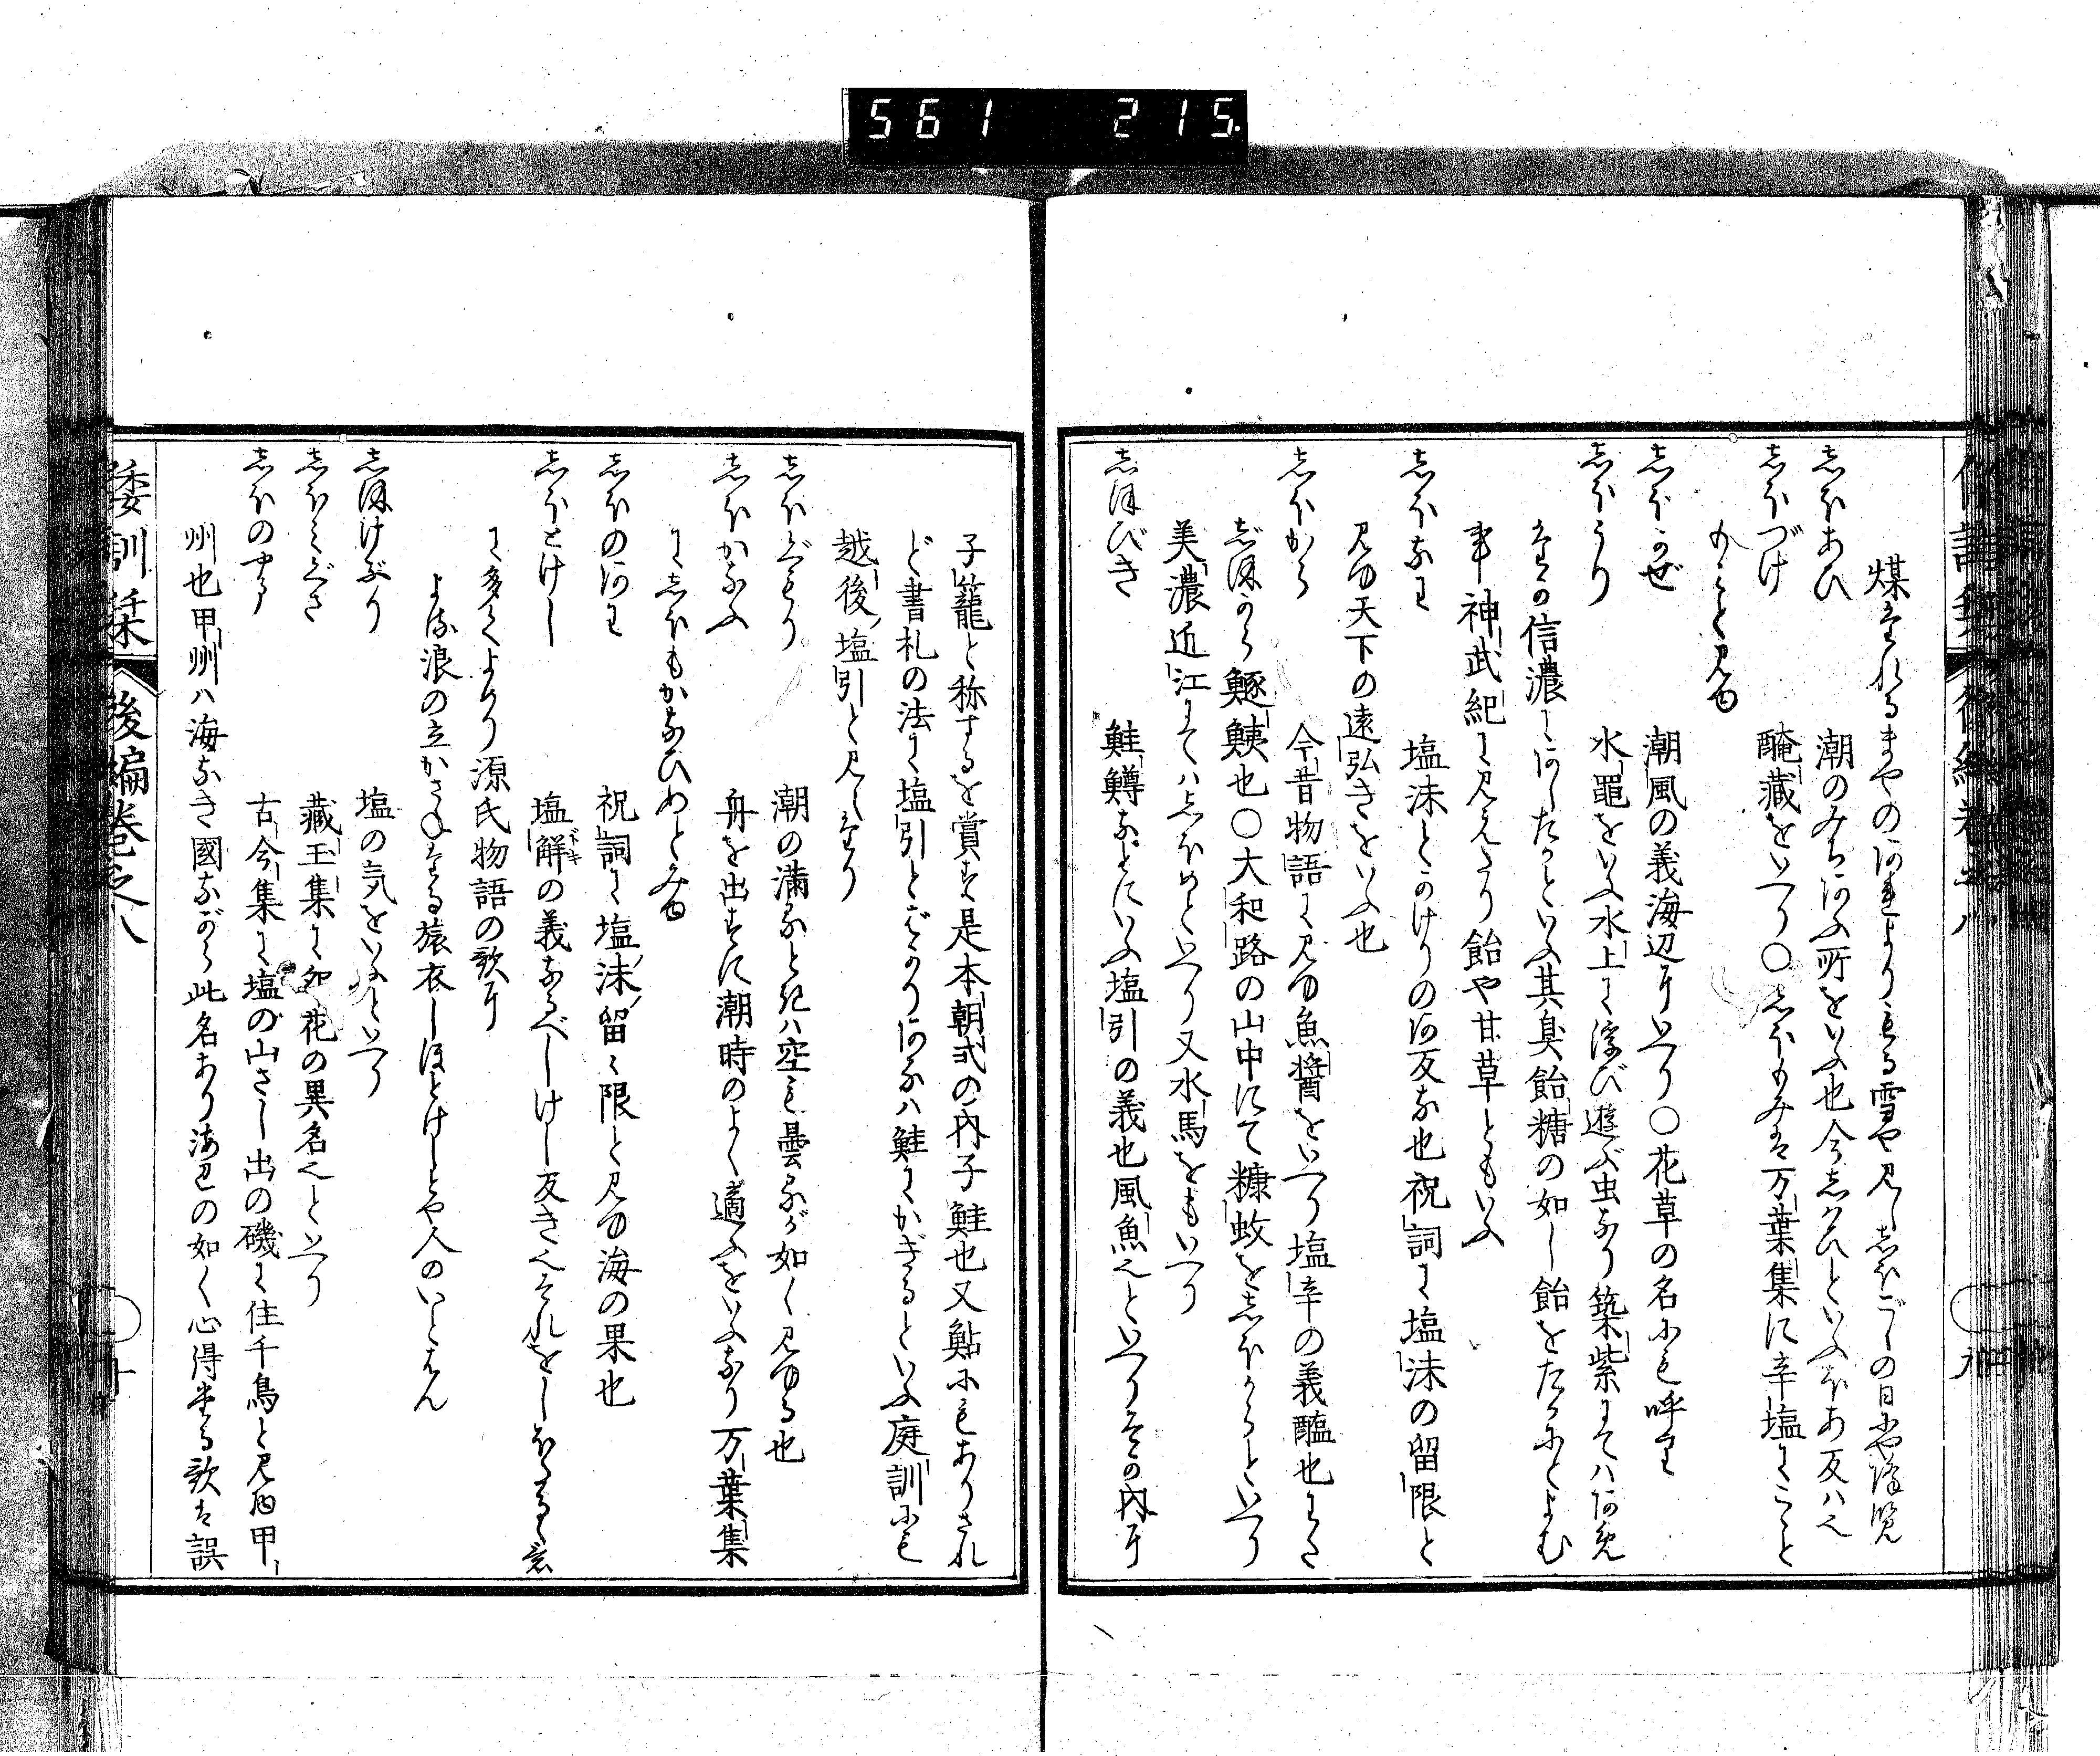 561 215.
煤なれるまやのあれよりもる雪や見しほごしの日にや降覧
志ほあひ 潮のみちあふ所をいふ也今志はひといふほあ反はへ
志ほづけ 醃藏をいへり○志ほもみは万葉集に辛塩にこと
もみと見ゆ
志ほかぜ 潮風の義海辺にいへり○花草の名にも呼り
志ほうり 水黽をいふ水上に浮び遊ぶ虫なり筑紫にてはあめ
たか信濃にあしたかといふ其臭飴糖の如し飴をたがにとよむ
事神武紀に見えたり飴や甘草ともいふ
志ほなわ 塩沫とかけりのあ反な也祝詞に塩沫の留限と
見ゆ天下の遠弘きをいふ也
志ほから 今昔物語に見ゆ魚醬をいへり塩辛の義醢也にた
しほから鱁鮧也○大和路の山中にて糠蚊を志ほからといへり
美濃近江にては志ほめといへり又水馬をもいへり
志ほびき 鮭鱒などにいふ塩引の義也風魚也といへりその内に
子籠と称するを賞す是本朝式の内子鮭也又鮎にもありされ
ど書札の法に塩引とばかりあるは鮭にかぎるといふ庭訓にも
越後塩引と見えたり
志ほぐもり 潮の満るときは空も曇るが如く見ゆる也
志ほかなふ 舟を出すに潮時のよく適ふをいふなり万葉集
に志ほもかなひぬとみゆ
志ほのあわ 祝詞に塩沫留く限と見ゆ海の果也
志ほとけし 塩解の義なるべしけし反きへそれをしほたるゝ意
に多くよめり源氏物語の歌に
よる浪の立かさねたる旅衣しほとけしとや人のいとはん
志ほけぶり 塩の気をいふといへり
志ほミぐさ 藏玉集に卯花の異名也といへり
志ほのやま 古今集に塩の山さし出の磯に住千鳥と見ゆ甲
州也甲州ハ海なき國ながら此名あり海辺の如く心得たる歌は誤
倭訓栞 後編巻之八